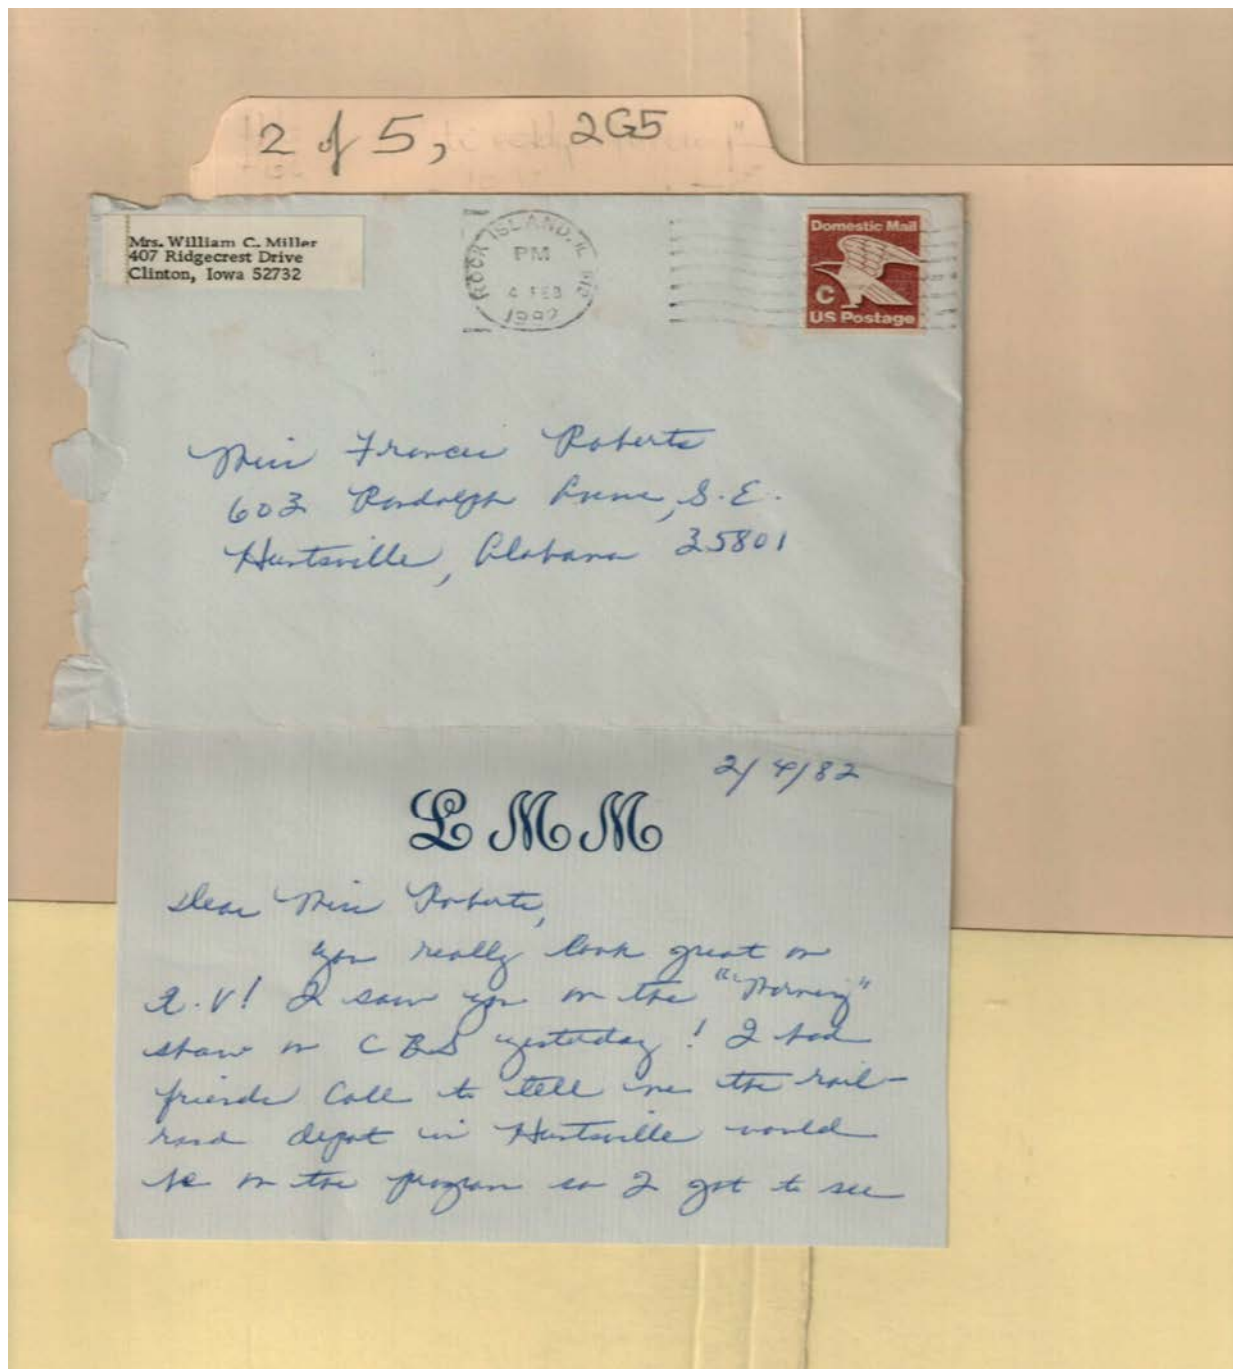 2 of 5, 2G5
Mrs. William C. Miller
407 Ridgecrest Drive
Clinton, Iowa 52732
ROCK ISLAND, IL
PM
4 FEB
1982
Domestic Mail
C
US Postage
Miss Frances Roberts
603 Randolph Avenue, S.E.
Huntsville, Alabama 35801
2/4/82
L M M
Dear Miss Roberts,
You really look great on
T.V! I saw you on the "Morning"
show on CBS yesterday! I had
friends call to tell me the rail-
road depot in Huntsville would
be on the program so I got to see